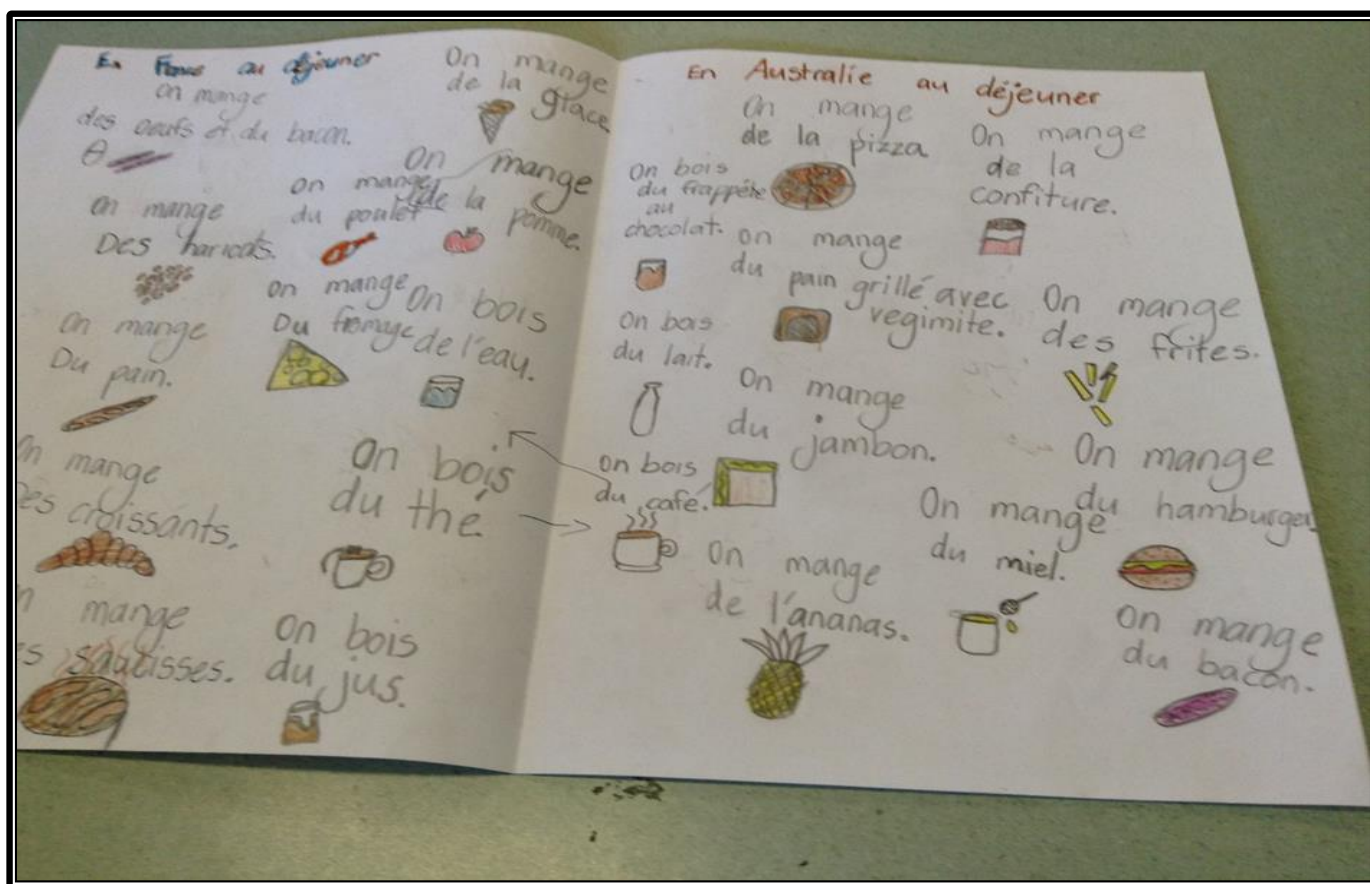 En France au déjeuner
On mange
des oeufs et du bacon.
On mange
de la glace
On mange
Des haricots.
On mange
du poulet
On mange
de la
pomme.
On mange
Du pain.
On mange
Du fromage
On bois
de l'eau.
On mange
des croissants.
On bois
du thé.
mange
saucisses.
On bois
du jus.
En Australie au déjeuner
On mange
de la pizza
On mange
de la
confiture.
On bois
du frappéte
au
chocolat.
On mange
du pain grillé avec
vegimite.
On mange
des frites.
On bois
du lait.
On mange
du jambon.
On mange
du hamburger
On bois
du café.
On mange
du miel.
On mange
de l'ananas.
On mange
du bacon.